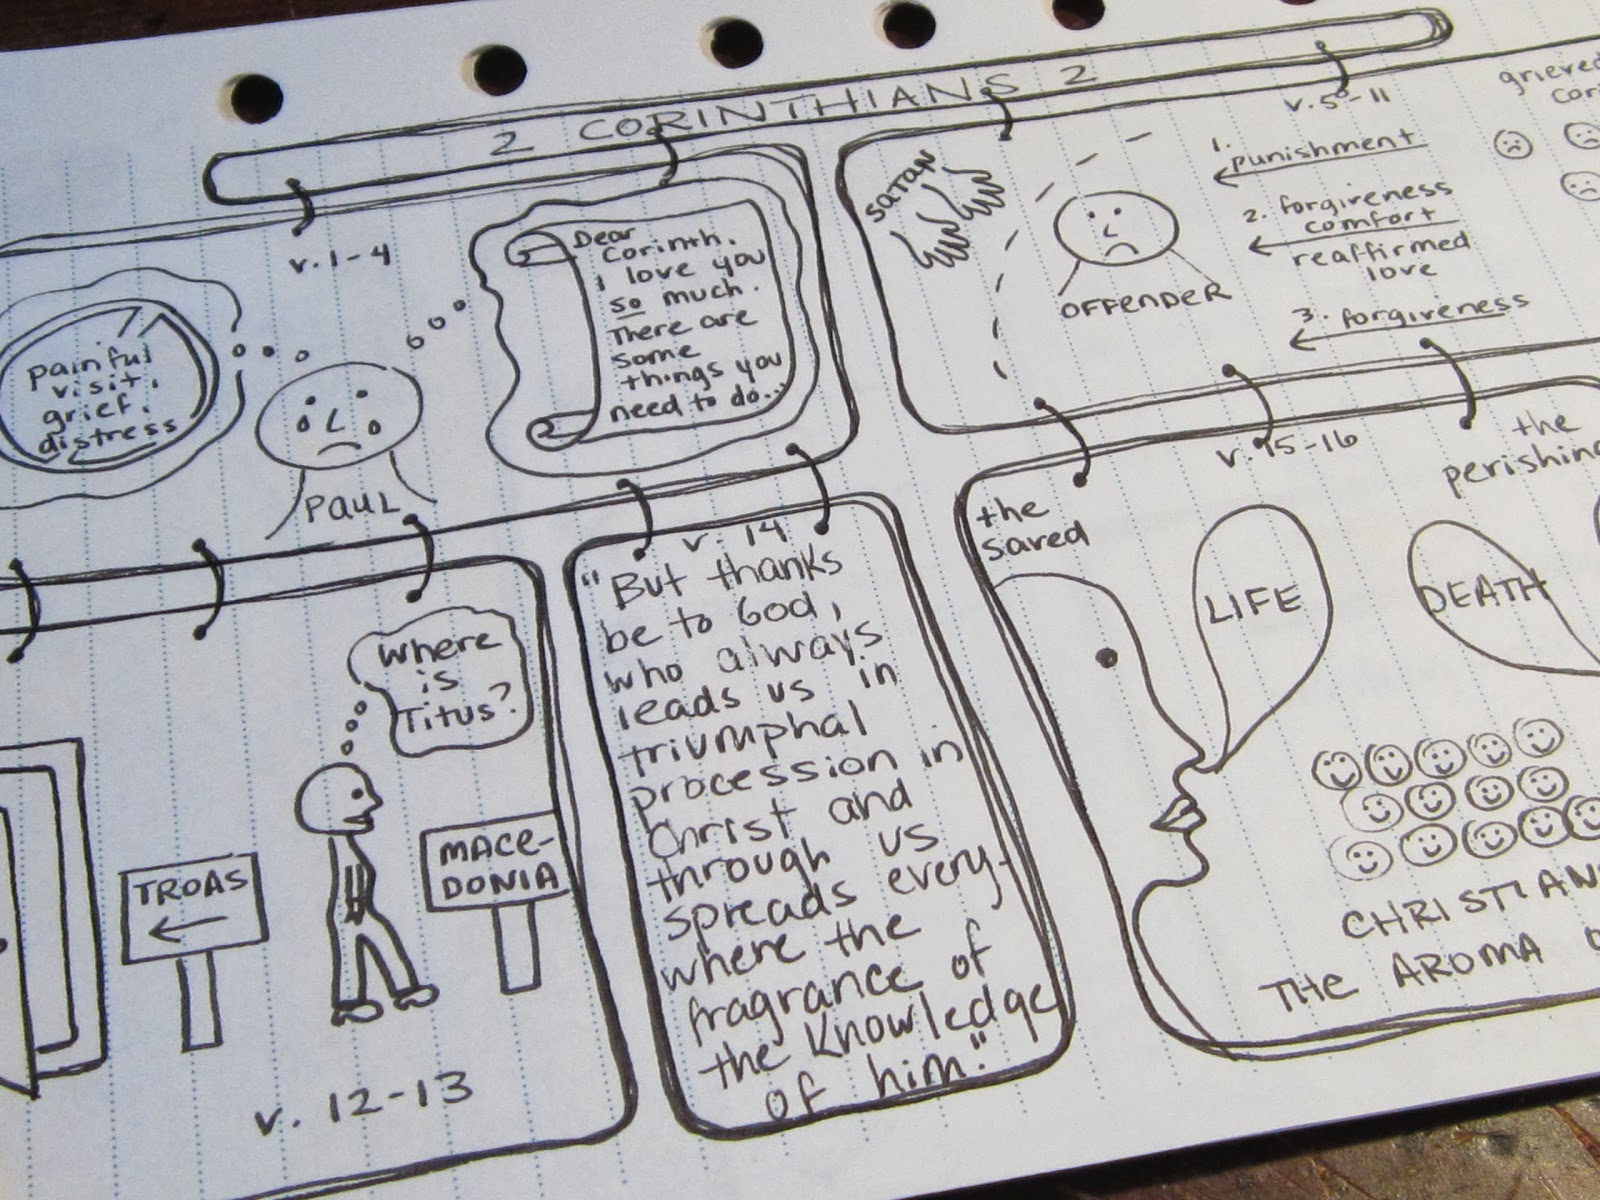 2 CORINTHIANS 2
v. 1-4
painful
visit.
grief.
distress
PAUL
Dear
Corinth.
I love you
so much.
There are
some
things you
need to do...
v. 5-11
SATAN
OFFENDER
1.
punishment
2. forgiveness
comfort
reaffirmed
love
3. forgiveness
grieved
TROAS
where
is
Titus?
MACE-
DONIA
v. 12-13
v. 14
"But thanks
be to God,
who always
leads us in
triumphal
procession in
Christ and
through us
spreads every-
where the
fragrance of
the knowledge
of him."
v. 15-16
the
saved
LIFE
the
perishing
DEATH
CHRISTIANS
THE AROMA